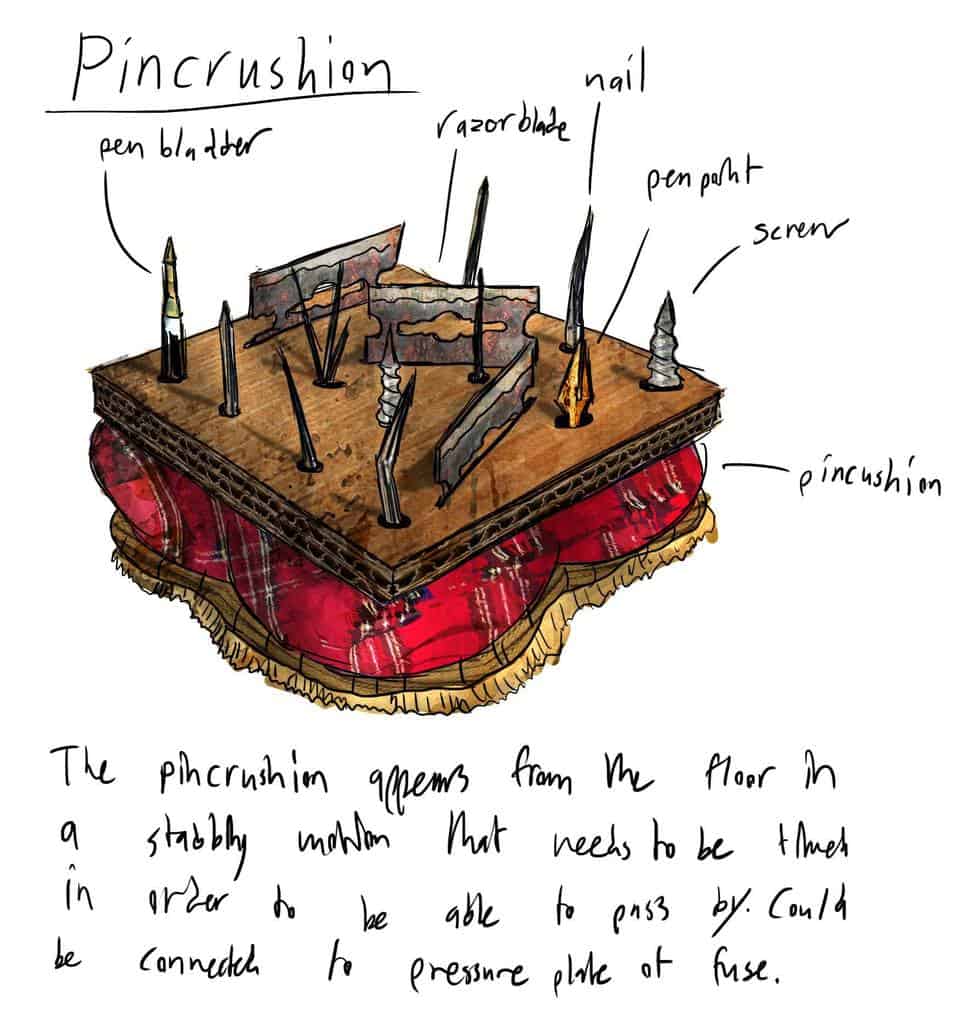 Pincrushion
nail
razorblade
pen bladder
pen point
screw
pincushion
The pincrushion appears from the floor in
a stabbly motion that needs to be timed
in order to be able to pass by. Could
be connected to pressure plate or fuse.